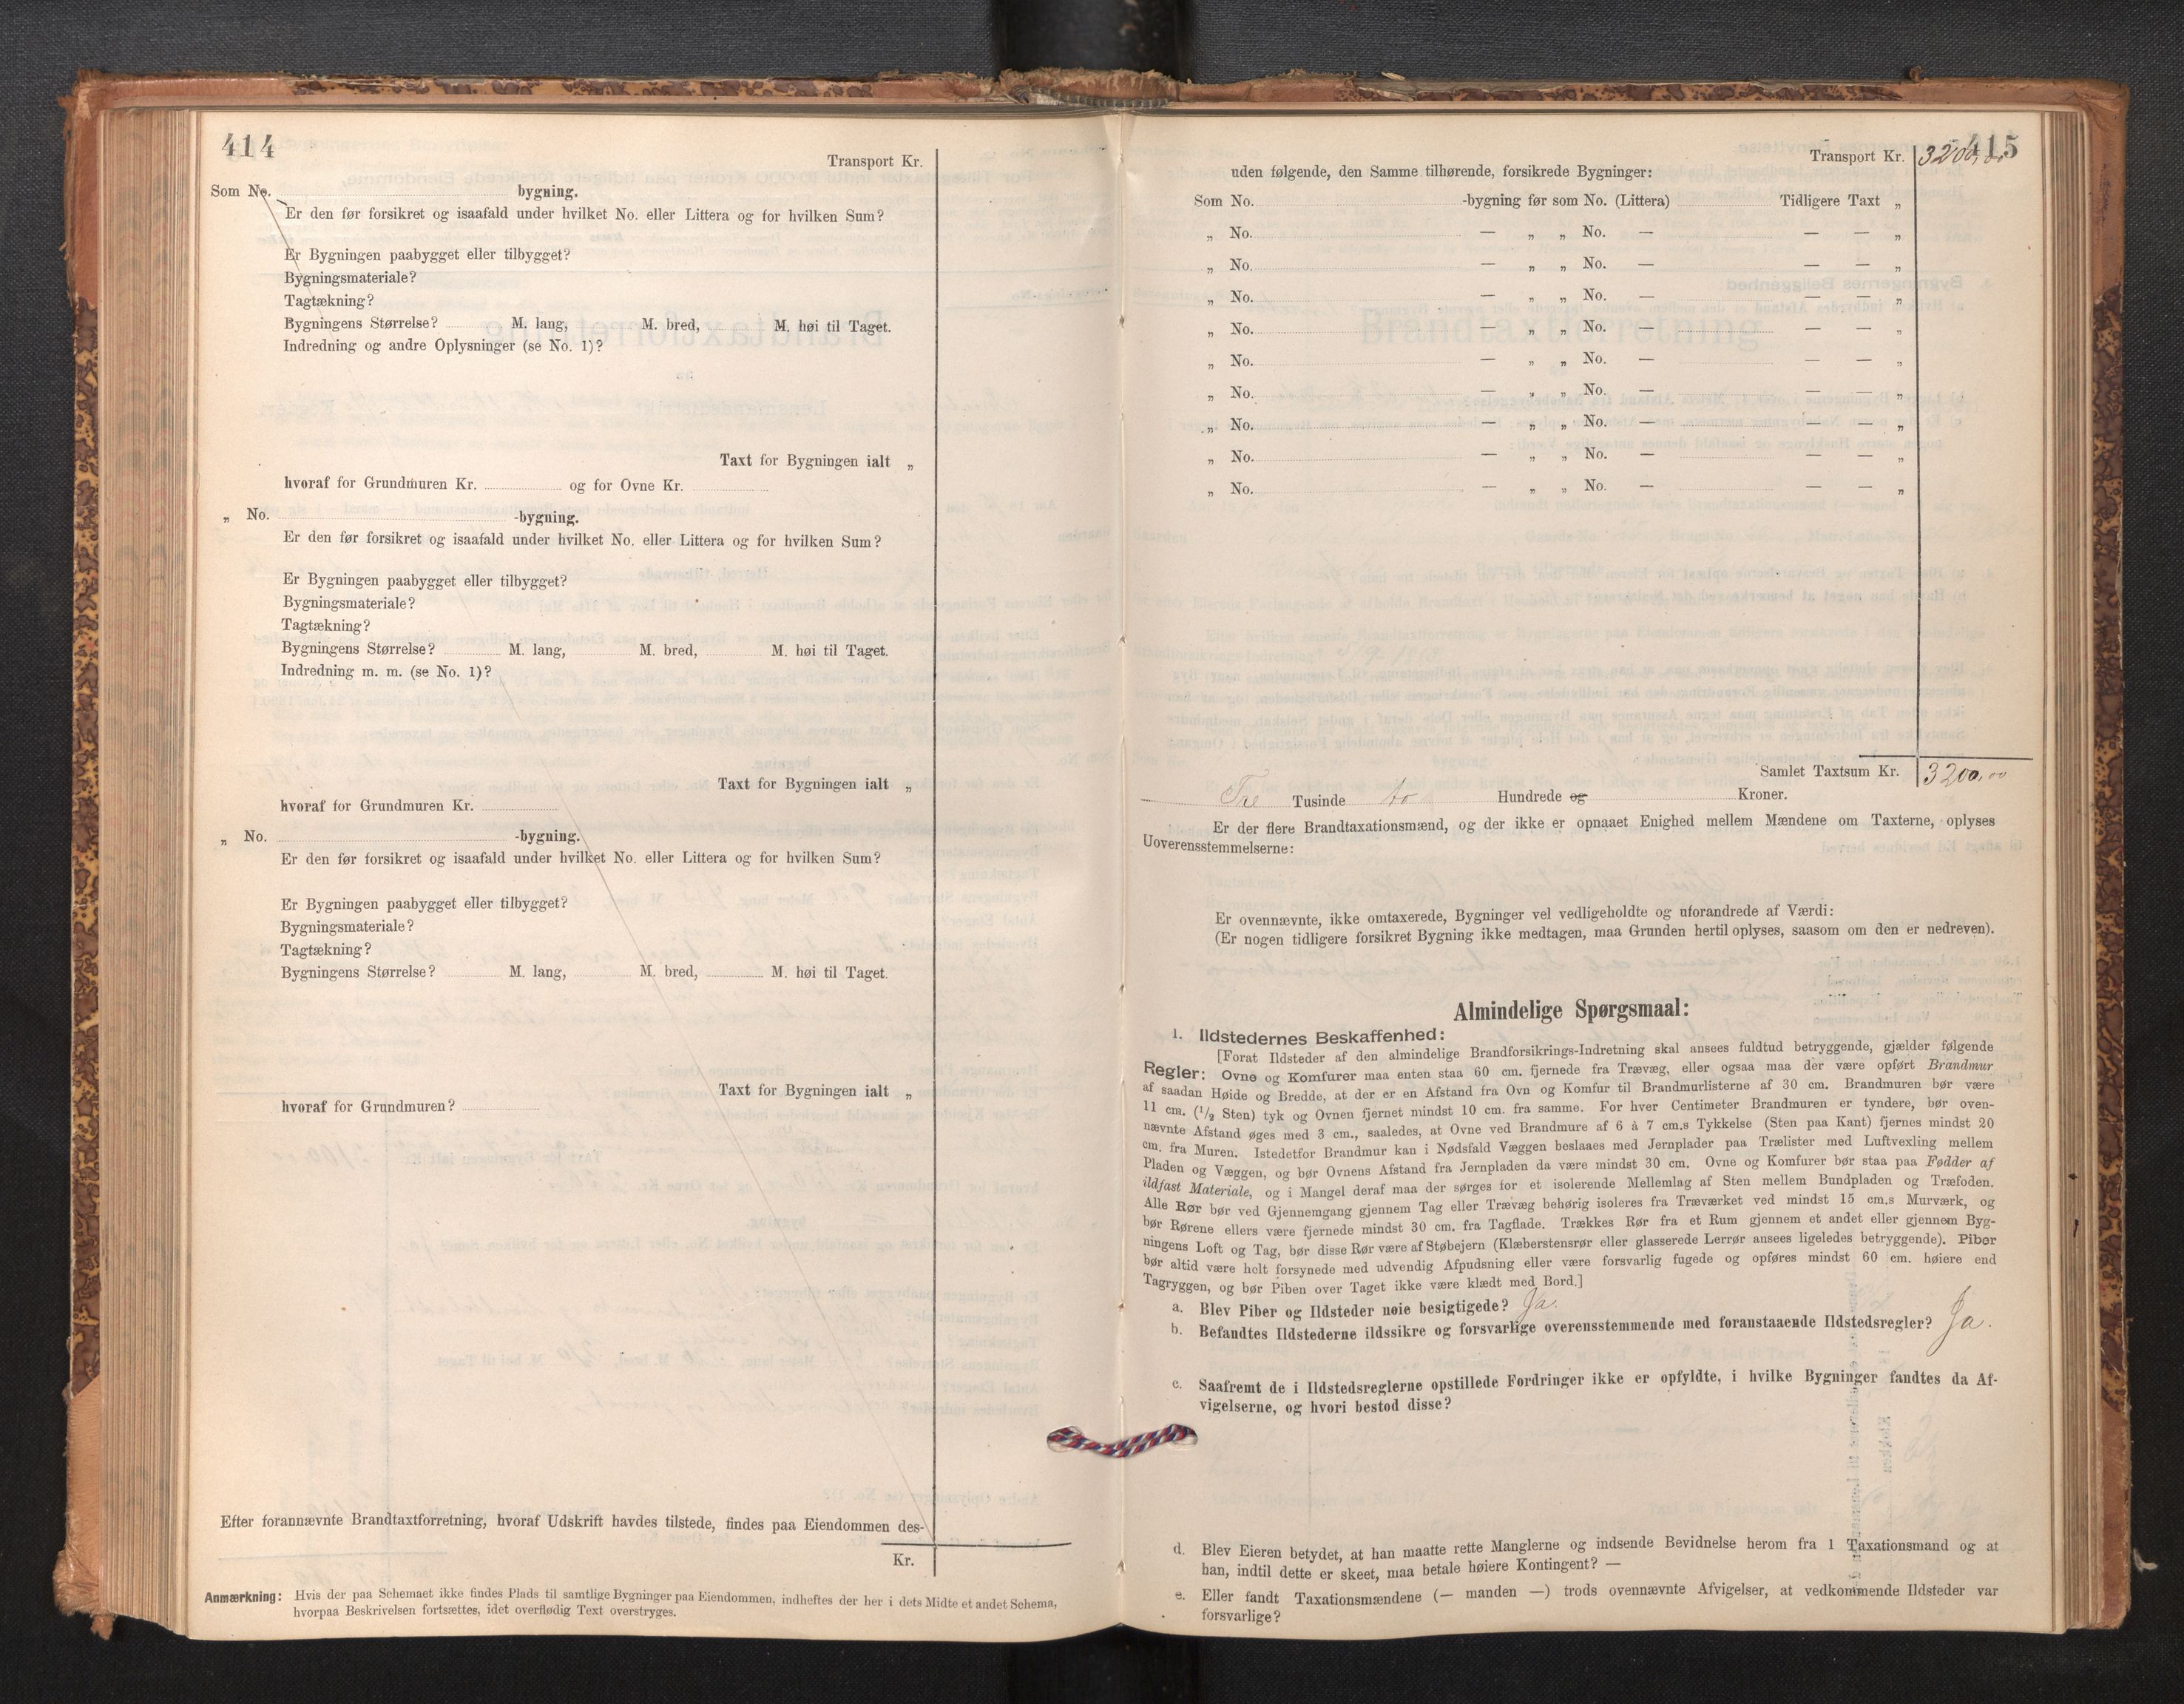 414
Transport Kr.
Som No. bygning.
Er den før forsikret og isaafald under hvilket No. eller Littera og for hvilken Sum?
Er Bygningen paabygget eller tilbygget?
Bygningsmateriale?
Tagtækning?
Bygningens Størrelse? M. lang, M. bred, M. høi til Taget.
Indredning og andre Oplysninger (se No. 1)?
Taxt for Bygningen ialt „
hvoraf for Grundmuren Kr. og for Ovne Kr.
„ No. -bygning.
Er den før forsikret og isaafald under hvilket No. eller Littera og for hvilken Sum?
Er Bygningen paabygget eller tilbygget?
Bygningsmateriale?
Tagtækning?
Bygningens Størrelse? M. lang, M. bred, M. høi til Taget.
Indredning m. m. (se No. 1)?
Taxt for Bygningen ialt „
hvoraf for Grundmuren Kr.
„ No. -bygning.
Er den før forsikret og isaafald under hvilket No. eller Littera og for hvilken Sum?
Er Bygningen paabygget eller tilbygget?
Bygningsmateriale?
Tagtækning?
Bygningens Størrelse? M. lang, M. bred, M. høi til Taget.
Taxt for Bygningen ialt „
hvoraf for Grundmuren?
Efter forannævnte Brandtaxtforretning, hvoraf Udskrift havdes tilstede, findes paa Eiendommen des-
Kr.
Anmærkning: Hvis der paa Schemaet ikke findes Plads til samtlige Bygninger paa Eiendommen, indheftes der her i dets Midte et andet Schema,
hvorpaa Beskrivelsen fortsættes, idet overflødig Text overstryges.
415
Transport Kr. 3200,00
uden følgende, den Samme tilhørende, forsikrede Bygninger:
Som No. -bygning før som No. (Littera) Tidligere Taxt „
„ No. — „ „ No. — — — „
„ No. — „ „ No. — — — „
„ No. — „ „ No. — — — „
„ No. — „ „ No. — — — „
„ No. — „ „ No. — — — „
„ No. — „ „ No. — — — „
„ No. — „ „ No. — — — „
„ No. — „ „ No. — — — „
„ No. — „ „ No. — — — „
Samlet Taxtsum Kr. 3200,00
Tre Tusinde to Hundrede og Kroner.
Er der flere Brandtaxationsmænd, og der ikke er opnaaet Enighed mellem Mændene om Taxterne, oplyses
Uoverensstemmelserne:
Er ovennævnte, ikke omtaxerede, Bygninger vel vedligeholdte og uforandrede af Værdi:
(Er nogen tidligere forsikret Bygning ikke medtagen, maa Grunden hertil oplyses, saasom om den er nedreven).
Almindelige Spørgsmaal:
1. Ildstedernes Beskaffenhed:
[Forat Ildsteder af den almindelige Brandforsikrings-Indretning skal ansees fuldtud betryggende, gjælder følgende
Regler: Ovne og Komfurer maa enten staa 60 cm. fjernede fra Trævæg, eller ogsaa maa der være opført Brandmur
af saadan Høide og Bredde, at der er en Afstand fra Ovn og Komfur til Brandmurlisterne af 30 cm. Brandmuren bør være
11 cm. (1/2 Sten) tyk og Ovnen fjernet mindst 10 cm. fra samme. For hver Centimeter Brandmuren er tyndere, bør oven-
nævnte Afstand øges med 3 cm., saaledes, at Ovne ved Brandmure af 6 à 7 cm.s Tykkelse (Sten paa Kant) fjernes mindst 20
cm. fra Muren. Istedetfor Brandmur kan i Nødsfald Væggen beslaaes med Jernplader paa Trælister med Luftvexling mellem
Pladen og Væggen, og bør Ovnens Afstand fra Jernpladen da være mindst 30 cm. Ovne og Komfurer bør staa paa Fødder af
ildfast Materiale, og i Mangel deraf maa der sørges for et isolerende Mellemlag af Sten mellem Bundpladen og Træfoden.
Alle Rør bør ved Gjennemgang gjennem Tag eller Trævæg behørig isoleres fra Træværket ved mindst 15 cm.s Murværk, og
bør Rørene ellers være fjernede mindst 30 cm. fra Tagflade. Trækkes Rør fra et Rum gjennem et andet eller gjennem Byg-
ningens Loft og Tag, bør disse Rør være af Støbejern (Klæberstensrør eller glasserede Lerrør ansees ligeledes betryggende). Piber
bør altid være helt forsynede med udvendig Afpudsning eller være forsvarlig fugede og opføres mindst 60 cm. høiere end
Tagryggen, og bør Piben over Taget ikke være klædt med Bord.]
a. Blev Piber og Ildsteder nøie besigtigede? Ja.
b. Befandtes Ildstederne ildssikre og forsvarlige overensstemmende med foranstaaende Ildstedsregler? Ja.
c. Saafremt de i Ildstedsreglerne opstillede Fordringer ikke er opfyldte, i hvilke Bygninger fandtes da Af-
vigelserne, og hvori bestod disse?
d. Blev Eieren betydet, at han maatte rette Manglerne og indsende Bevidnelse herom fra 1 Taxationsmand og at
han, indtil dette er skeet, maa betale høiere Kontingent? —
e. Eller fandt Taxationsmændene (— manden —) trods ovennævnte Afvigelser, at vedkommende Ildsteder var
forsvarlige?